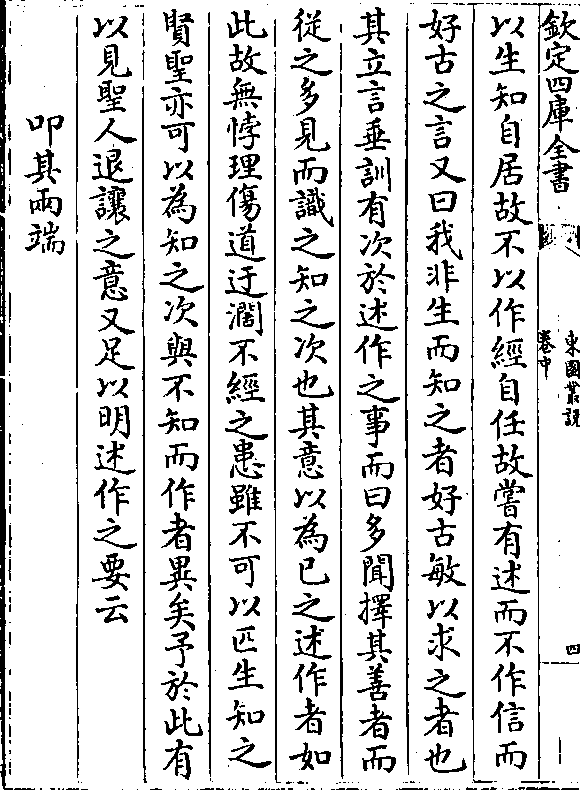 欽定四庫全書
東園叢說
卷中
四
以生知自居故不以作經自任故嘗有述而不作信而
好古之言又曰我非生而知之者好古敏以求之者也
其立言垂訓有次於述作之事而曰多聞擇其善者而
從之多見而識之知之次也其意以為已之述作者如
此故無悖理傷道迂濶不經之患雖不可以匹生知之
賢聖亦可以為知之次與不知而作者異矣予於此有
以見聖人退讓之意又足以明述作之要云
叩其兩端